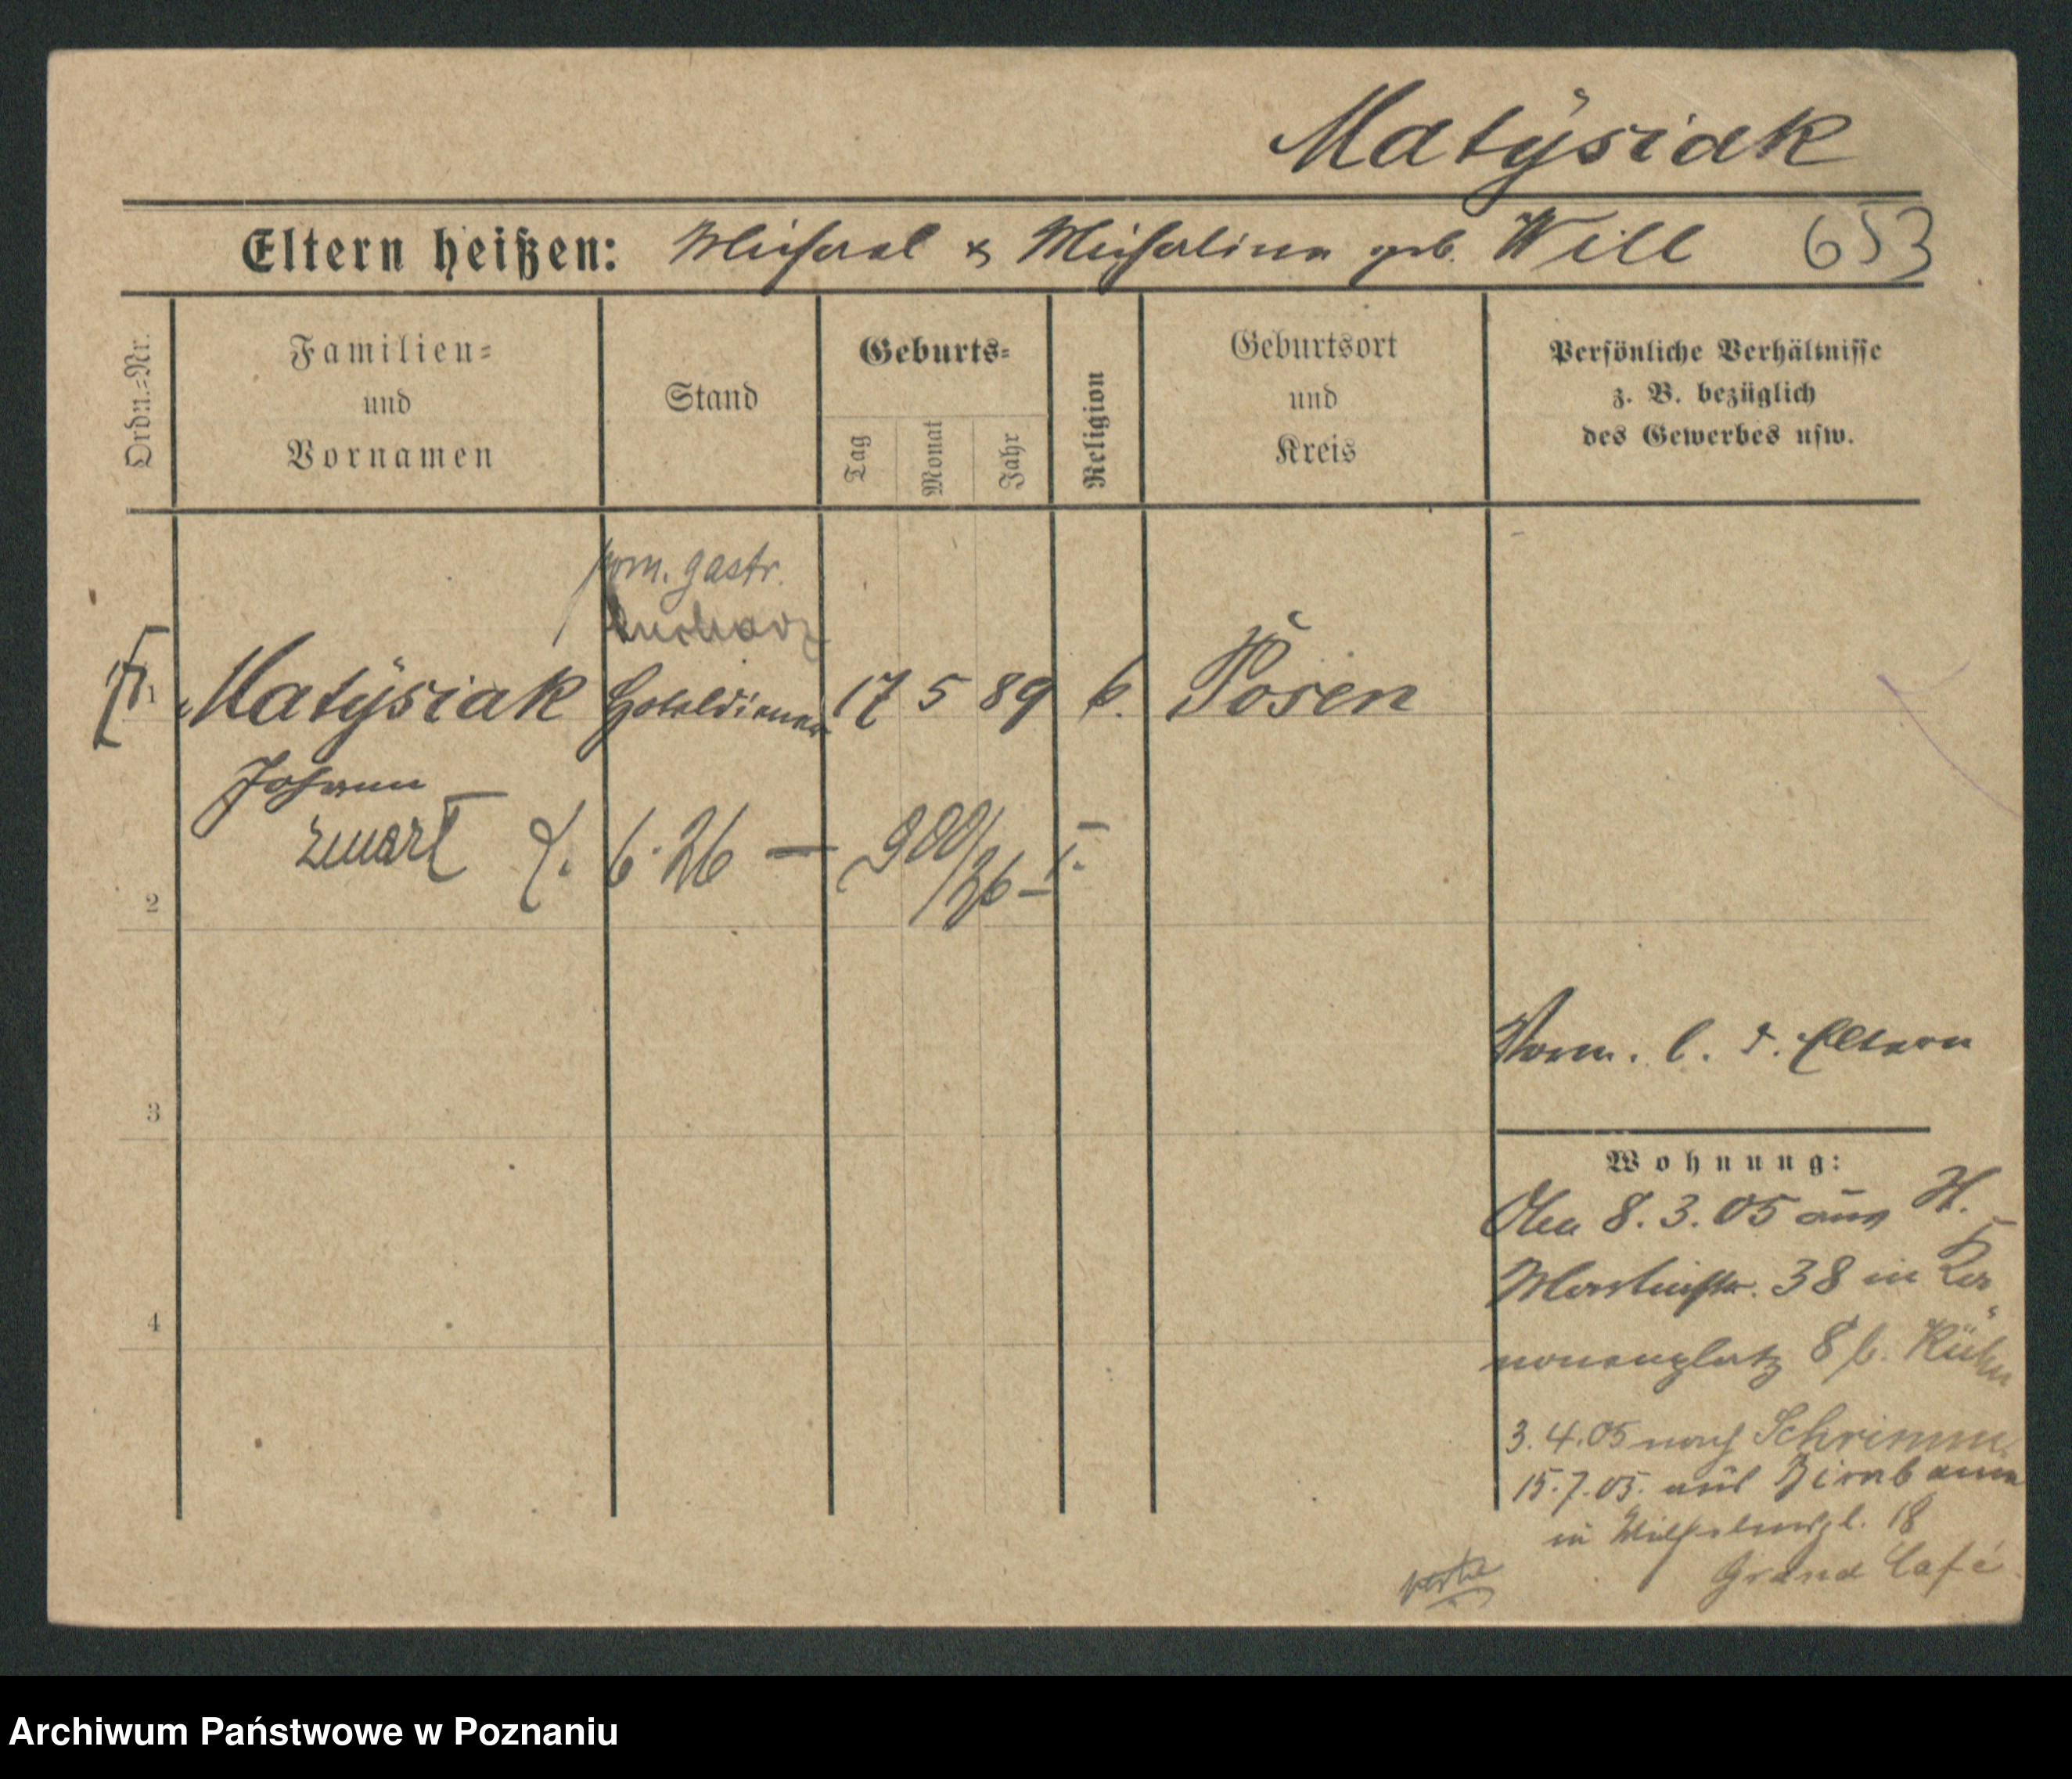 Matysiak
Eltern heißen: Michael & Michalina geb. Will 653
Ordn.=Nr.
Familien= und Vornamen
Stand
Geburts=
Tag
Monat
Jahr
Religion
Geburtsort und Kreis
Persönliche Verhältnisse z. B. bezüglich des Gewerbes usw.
pom. gastr.
kucharz
1 Matysiak Hoteldiener 17 5 89 k. Posen
Johann
zmarł 2. 6. 26 — 900/26 I.
2
3
4
Vorm. b. d. Eltern
Wohnung:
Den 8. 3. 05 aus St.
Martinstr. 38 in Ka
nonenplatz 8 b. Kühn
3. 4. 05 nach Schrimm
15. 7. 05. aus Birnbaum
in Wilhelmspl. 18
Grand Café
Archiwum Państwowe w Poznaniu